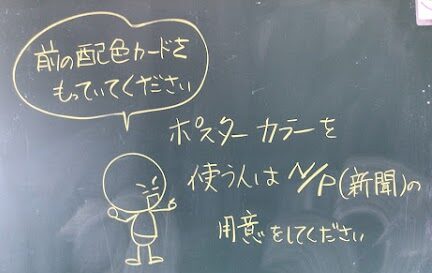 前の配色カードを
もっていてください
ポスターカラーを
使う人は N/P(新聞)の
用意をしてください